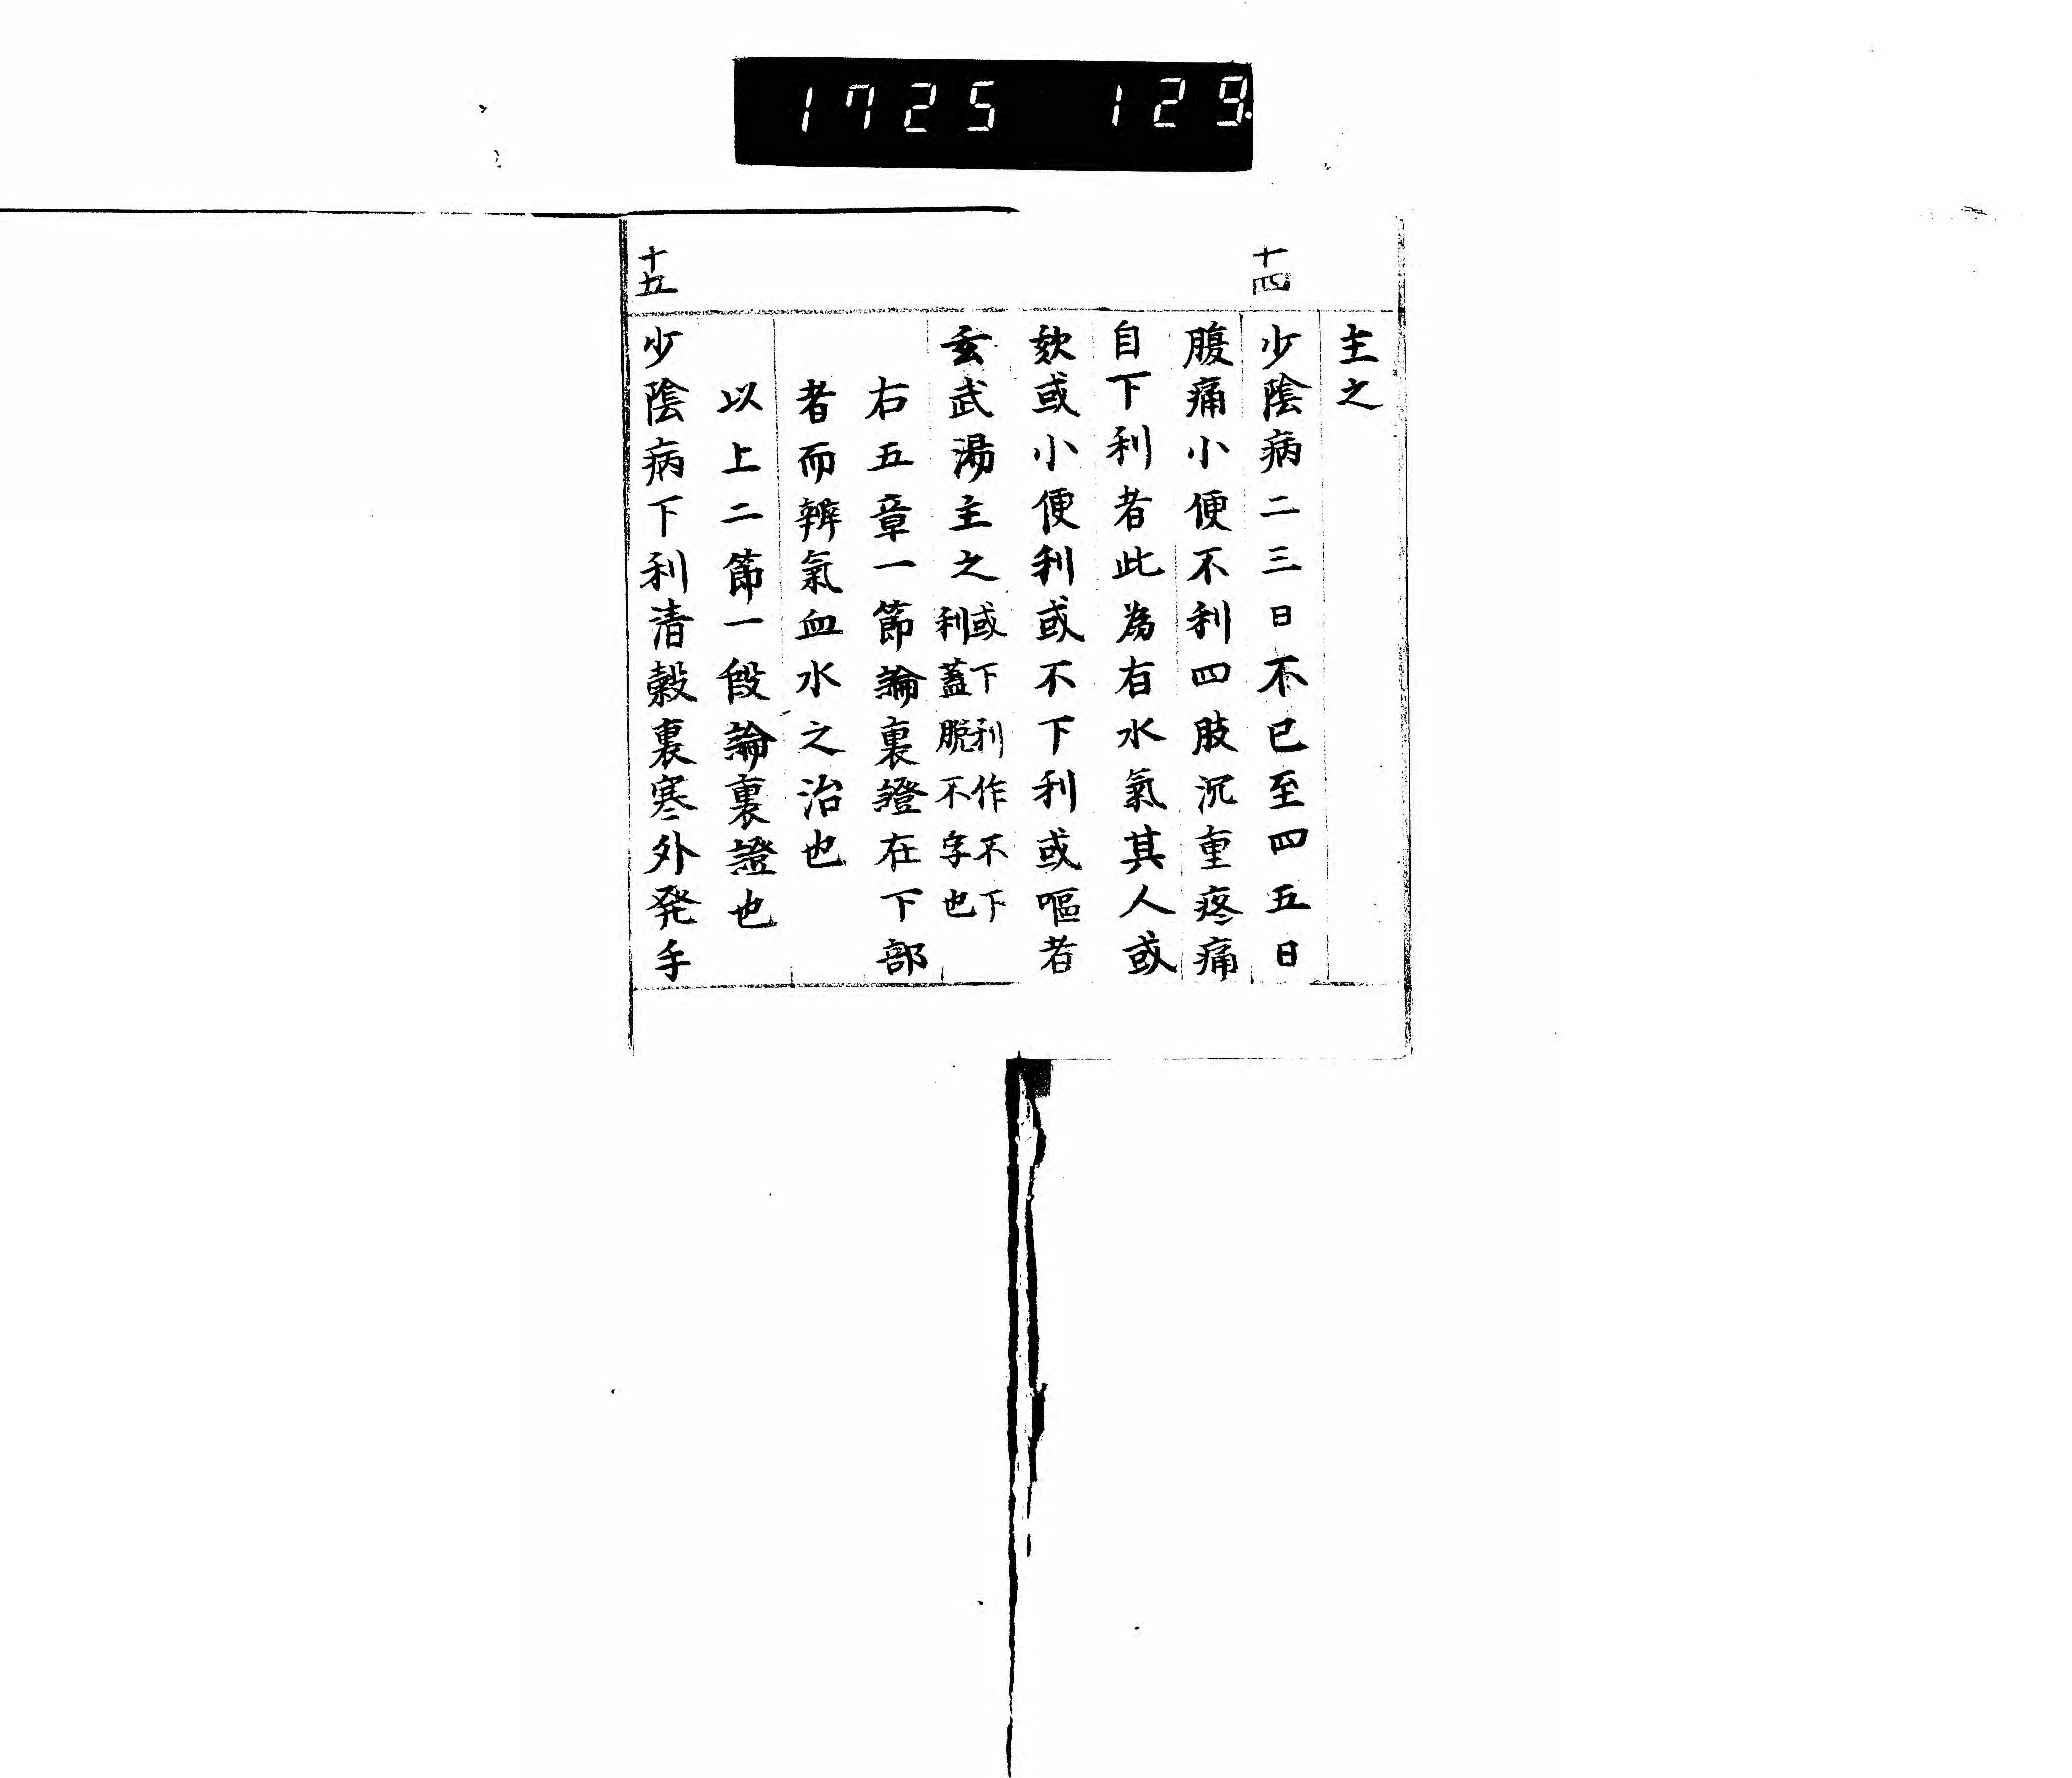 1725 129
主之
十四
少陰病二三日不已至四五日
腹痛小便不利四肢沉重疼痛
自下利者此為有水氣其人或
欬或小便利或不下利或嘔者
玄武湯主之或下利作不下
利蓋脫不字也
右五章一節論裏證在下部
者而辨氣血水之治也
以上二節一段論裏證也
十五
少陰病下利清穀裏寒外発手